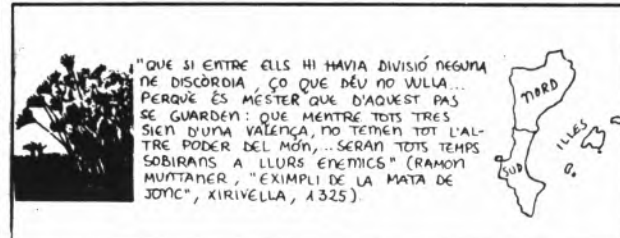 "QUE SI ENTRE ELLS HI HAVIA DIVISIÓ NEGUNA
NE DISCÒRDIA, ÇO QUE DÉU NO VULLA...
PERQUÈ ÉS MESTER QUE D'AQUEST PAS
SE GUARDEN: QUE MENTRE TOTS TRES
SIEN D'UNA VALENÇA, NO TEMEN TOT L'AL-
TRE PODER DEL MÓN,... SERAN TOTS TEMPS
SOBIRANS A LLURS ENEMICS" (RAMON
MUNTANER, "EXIMPLI DE LA MATA DE
JONC", XIRIVELLA, 1325).
NORD
SUD
ILLES